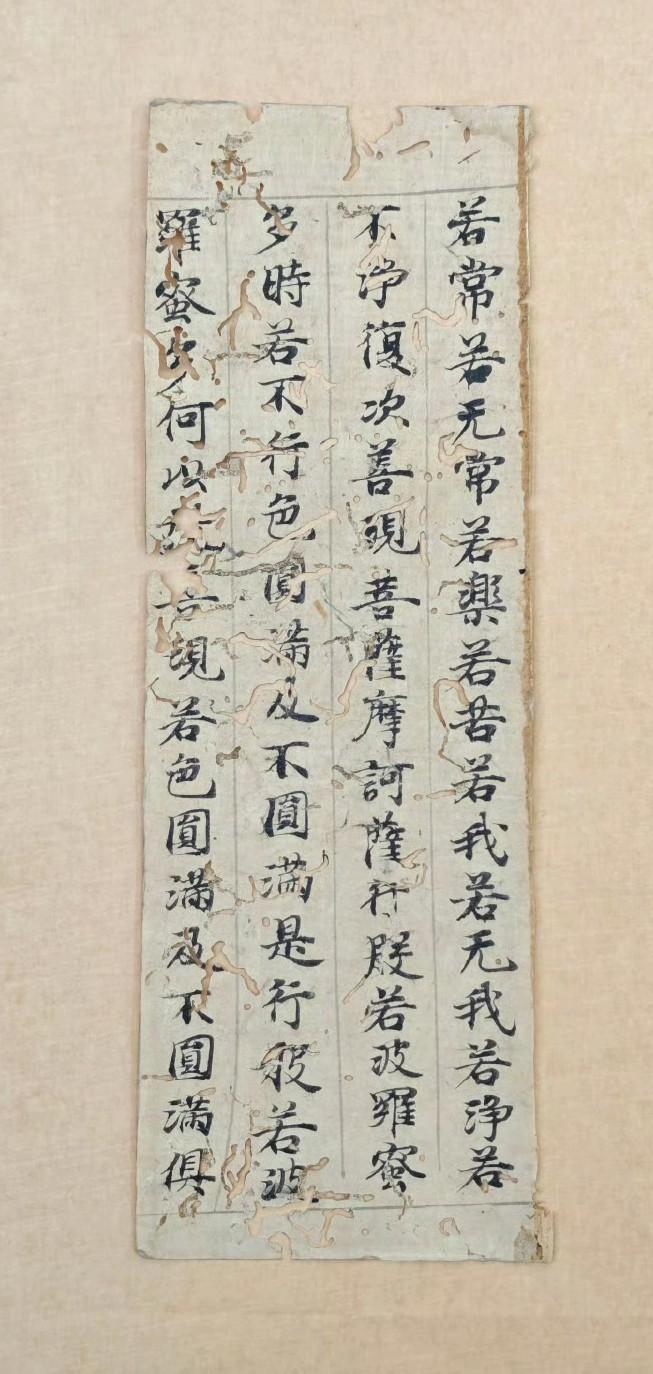 若常若无常若樂若苦若我若无我若浄若
不浄復次善現菩薩摩訶薩行般若波羅蜜
多時若不行色圓滿及不圓滿是行般若波
羅蜜多何以現若色圓滿及不圓滿俱